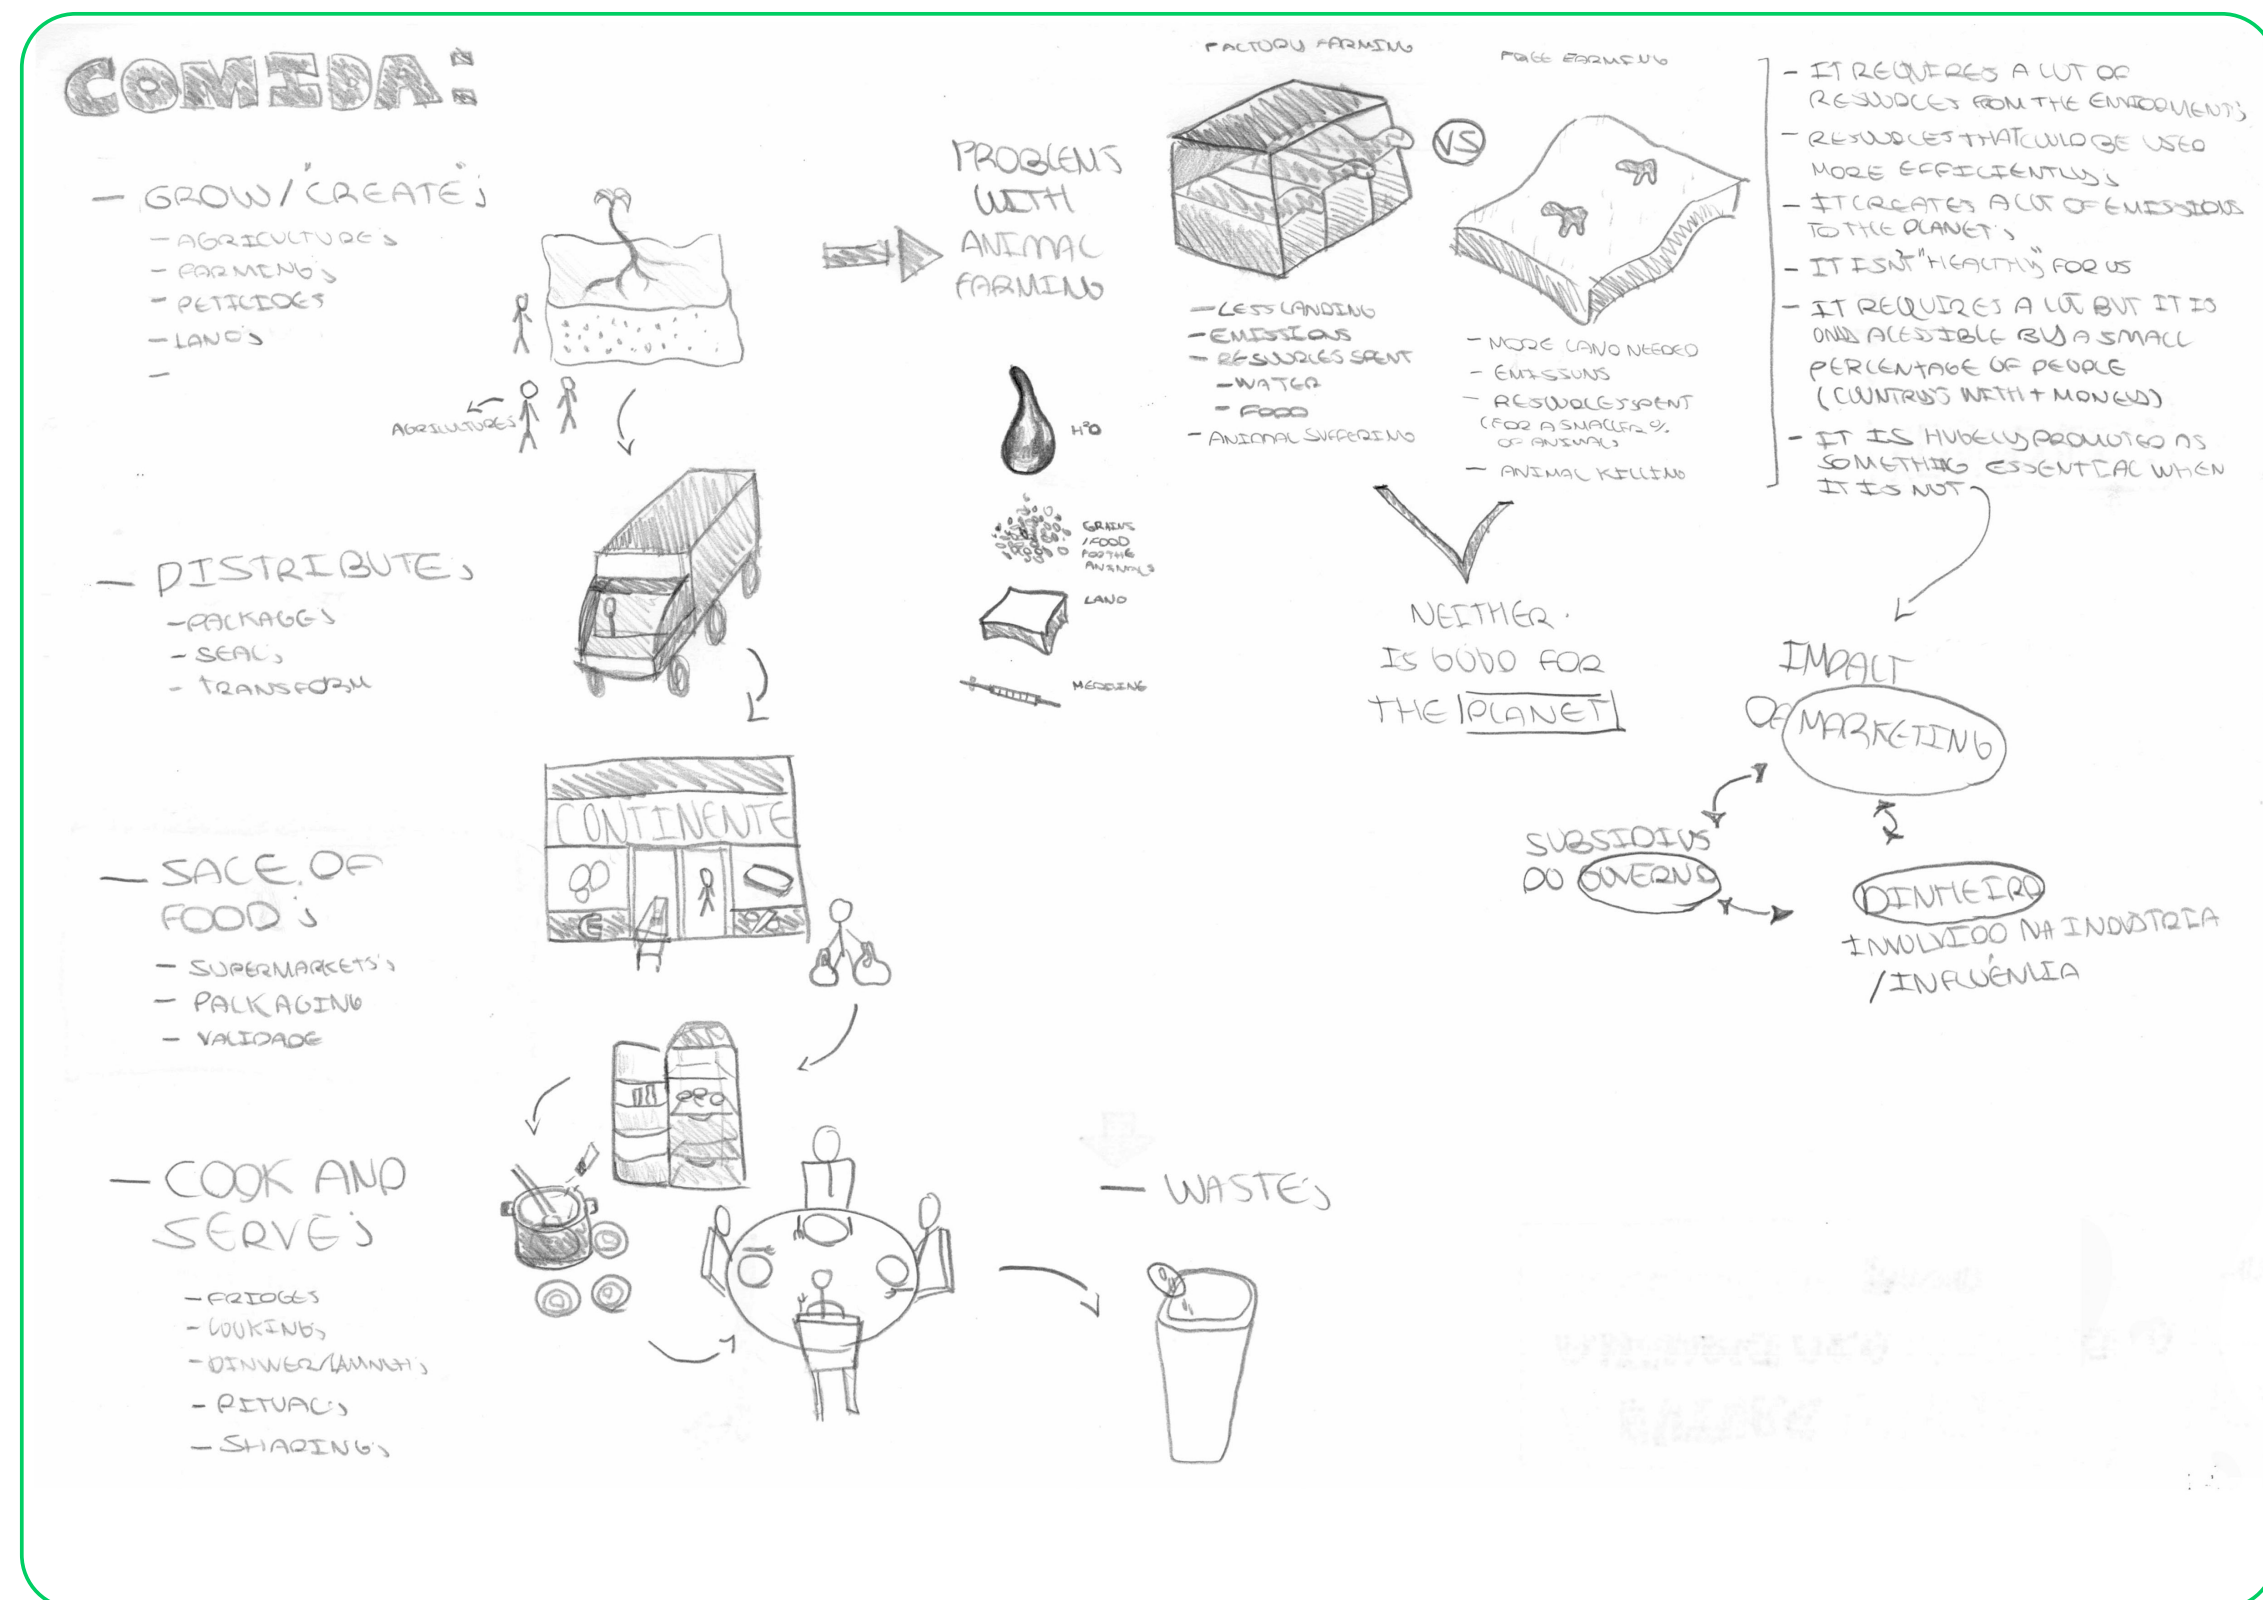 COMIDA:
- GROW/"CREATE";
- AGRICULTURE;
- FARMING;
- PETICIDES
- LAND;
-
AGRICULTURES
- DISTRIBUTE;
- PACKAGES
- SEAL;
- TRANSFORM
- SALE OF
FOOD;
- SUPERMARKETS;
- PACKAGING
- VALIDADE
CONTINENTE
- COOK AND
SERVE;
- FRIDGES
- COOKING;
- DINNER/LAUNCH;
- RITUAL;
- SHARING;
- WASTE;
PROBLEMS
WITH
ANIMAL
FARMING
H²O
GRAINS
/FOOD
FOR THE
ANIMALS
LAND
MEDICINE
FACTORY FARMING
VS
FREE FARMING
- LESS LANDING
- EMISSIONS
- RESOURCES SPENT
- WATER
- FOOD
- ANIMAL SUFFERING
- MORE LAND NEEDED
- EMISSONS
- RESOURCES SPENT
(FOR A SMALLER %
OF ANIMALS
- ANIMAL KILLING
NEITHER
IS GOOD FOR
THE PLANET
- IT REQUIRES A LOT OF
RESOURCES FROM THE ENVIORMENT;
- RESOURCES THAT COULD BE USED
MORE EFFICIENTLY;
- IT CREATES A LOT OF EMISSIONS
TO THE PLANET;
- IT ISN'T "HEALTHY" FOR US
- IT REQUIRES A LOT BUT IT IS
ONLY ACESSIBLE BY A SMALL
PERCENTAGE OF PEOPLE
(COUNTRYS WITH + MONEY)
- IT IS HUGELY PROMOTED AS
SOMETHING ESSENTIAL WHEN
IT IS NOT
IMPACT
OF MARKETING
SUBSIDIOS
DO GOVERNO
DINHEIRO
INVOLVIDO NA INDÚSTRIA
/INFLUÊNCIA